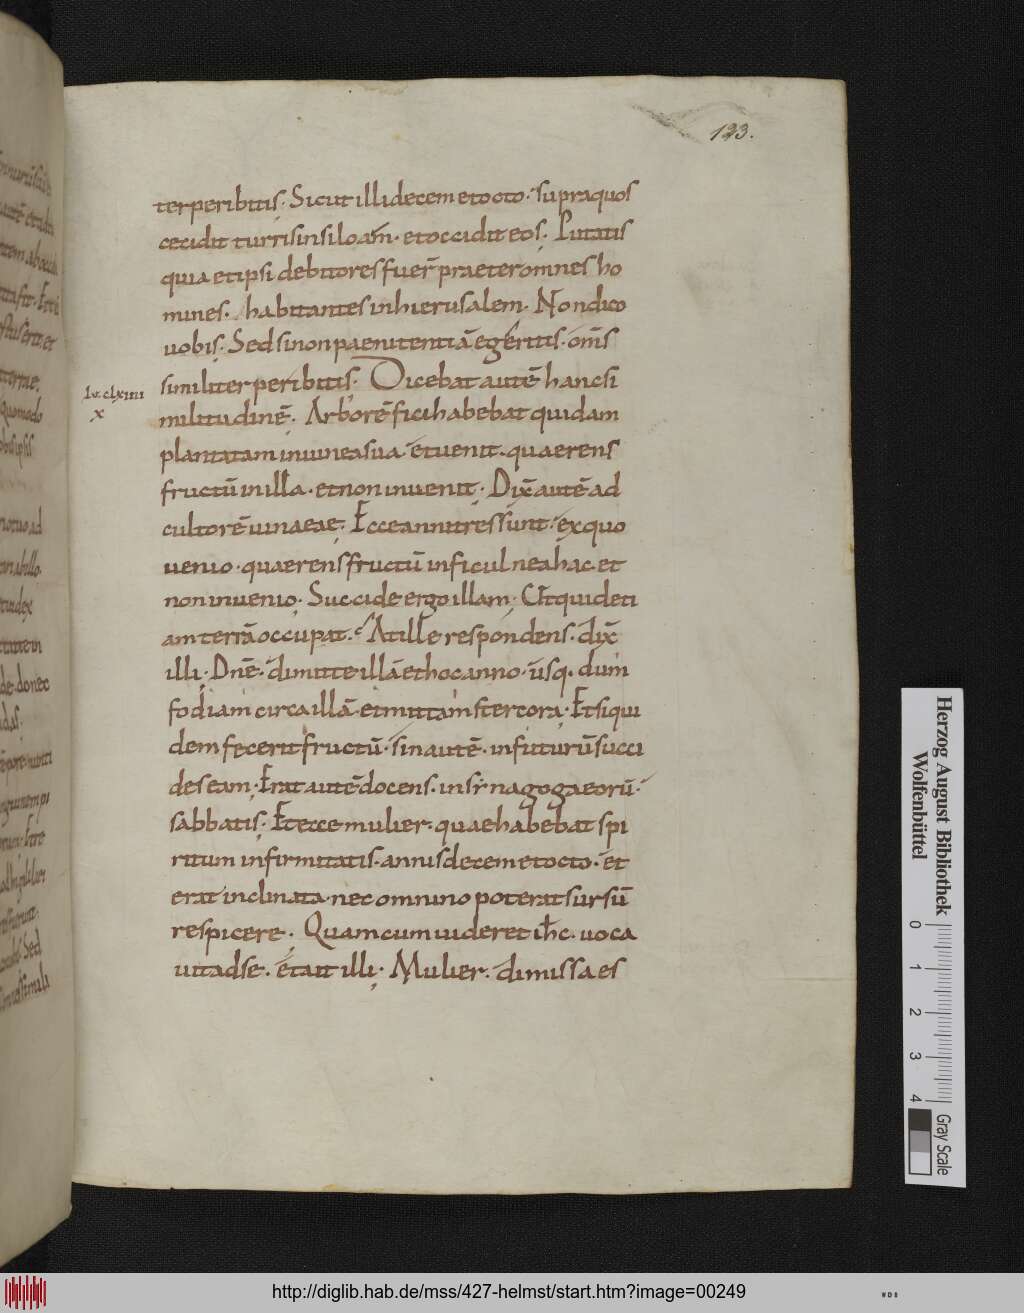 123.
terperibitis. Sicut illi decem et octo. supra quos
cecidit turris in siloam. et occidit eos. Putatis
quia et ipsi debitores fuer̄ praeter omnes ho
mines. habitantes in hierusalem. Non dico
uobis. Sed si non paenitentiā egeritis. om̄s
similiter peribitis. Dicebat autē hanc si
lv. clxiiii
x
militudinē. Arborē fici habebat quidam
plantatam in uinea sua. et uenit. quaerens
fructū in illa. et non inuenit. Dix̄ autē ad
cultorē uinaeae. Ecce anni tres sunt. ex quo
uenio. quaerens fructū in ficulnea hac. et
non inuenio. Succide ergo illam. Ut quid eti
am terrā occupat. At ille respondens. dix̄
illi. Dn̄e. dimitte illā et hoc anno. usq. dum
fodiam circa illā. et mittam stercora. Et siqui
dem fecerit fructū. sin autē. in futurū succi
des eam. Erat autē docens. in synagoga eorū.
sabbatis. Et ecce mulier. quae habebat spi
ritum infirmitatis. annis decem et octo. et
erat inclinata. nec omnino poterat sursū
respicere. Quam cum uideret ih̄c. uoca
uit ad se. et ait illi. Mulier. dimissa es
Herzog August Bibliothek
Wolfenbüttel
0 1 2 3 4
Gray Scale
http://diglib.hab.de/mss/427-helmst/start.htm?image=00249